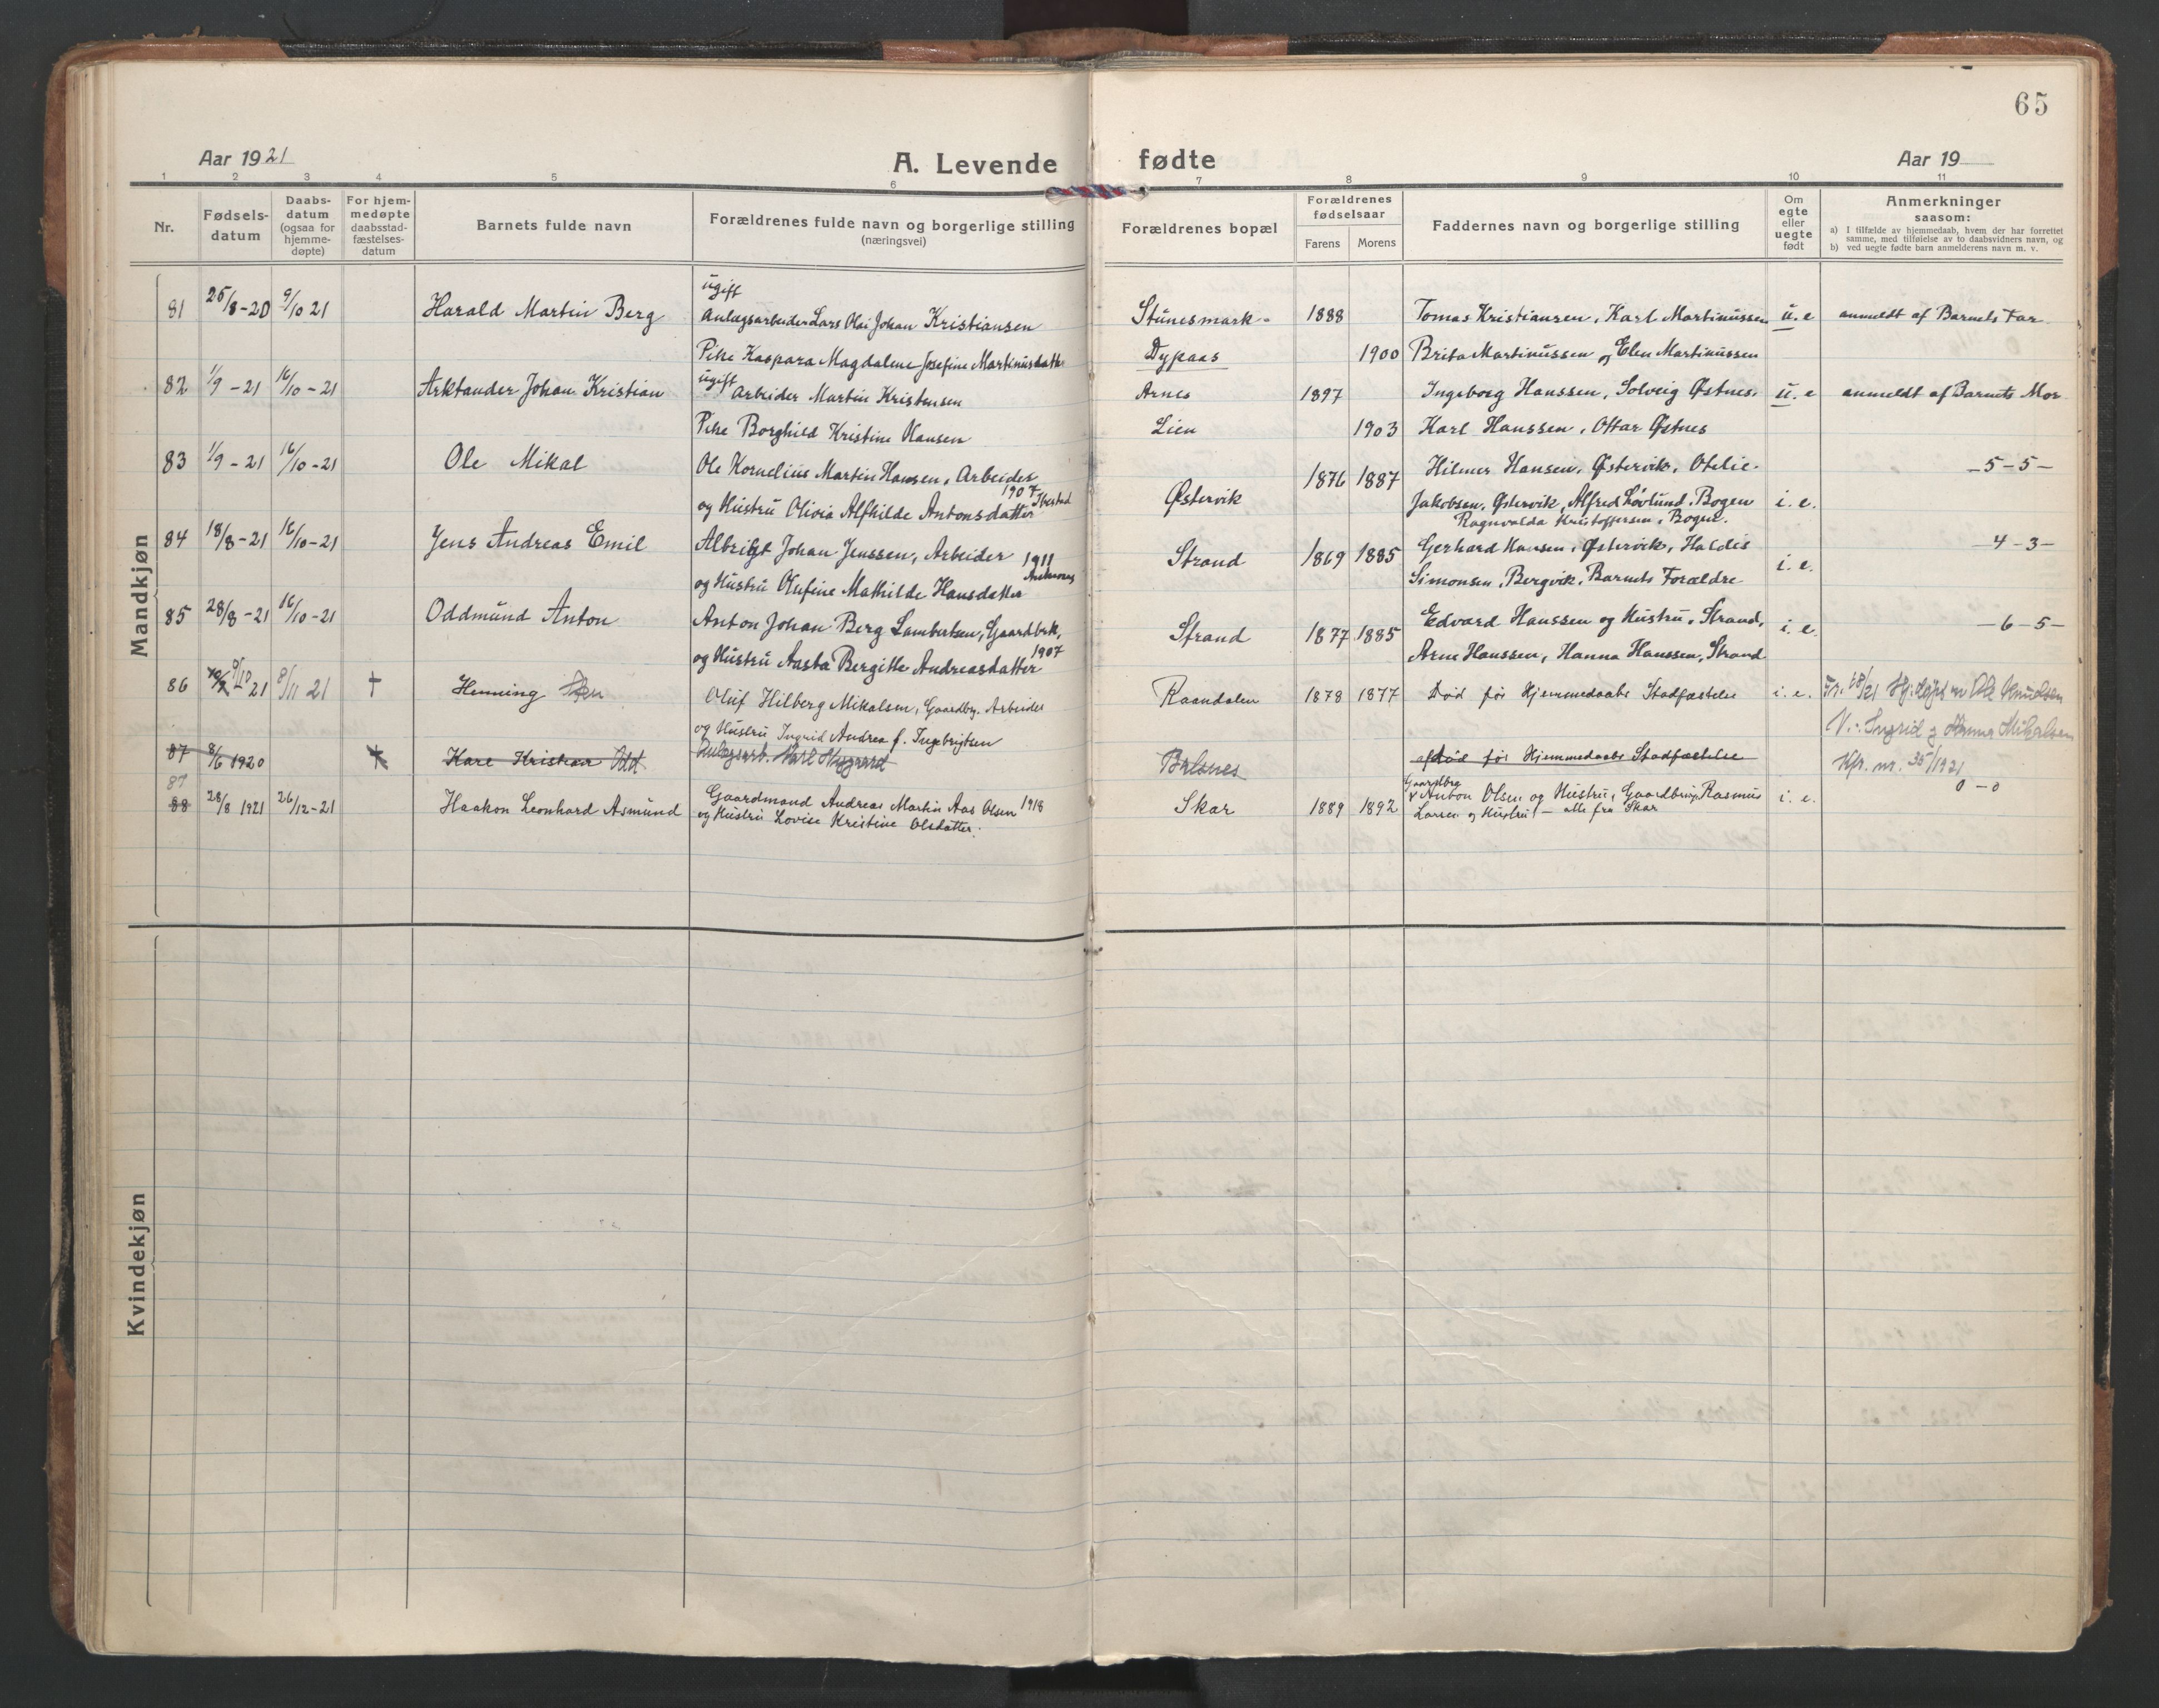 65
Aar 1921
A. Levende fødte
Aar 19
1 2 3 4 5 6 7 8 9 10 11
Nr.
Fødsels-
datum
Daabs-
datum
(ogsaa for
hjemme-
døpte)
For hjem-
medøpte
daabsstad-
fæstelses-
datum
Barnets fulde navn
Forældrenes fulde navn og borgerlige stilling
(næringsvei)
Forældrenes bopæl
Forældrenes
fødselsaar
Farens Morens
Faddernes navn og borgerlige stilling
Om
egte
eller
uegte
født
Anmerkninger
saasom:
a) I tilfælde av hjemmedaab, hvem der har forrettet
samme, med tilføielse av to daabsvidners navn, og
b) ved uegte fødte barn anmelderens navn m. v.
Mandkjøn
ugift
81 25/8-20 9/10 21 Harald Martin Berg Anlægsarbeider Lars Olai Johan Kristiansen Stunesmark 1888 Tomas Kristiansen, Karl Martinussen u. e anmeldt af Barnets Far
Pike Kaspara Magdalene Josefine Martinusdatter Dypaas 1900 Brita Martinussen og Elen Martinussen
82 1/9-21 16/10-21 Arktander Johan Kristian ugift Arbeider Martin Kristensen Arnes 1897 Ingeborg Hanssen, Solveig Østnes. u. e anmeldt af Barnets Mor
Pike Borghild Kristine Hansen Lien 1903 Karl Hanssen, Ottar Østnes
83 1/9-21 16/10-21 Ole Mikal Ole Kornelius Martin Hansen, Arbeider Østervik 1876 1887 Hilmer Hansen, Østervik, Otelie -5-5-
og Hustru Olivia Alfhilde Antonsdatter 1907 Ibestad Jakobsen, Østervik, Alfred Løvlund, Bogen i. e.
Ragnvalda Kristoffersen, Bogen.
84 18/8-21 16/10-21 Jens Andreas Emil Albrigt Johan Jenssen, Arbeider 1911 Strand 1869 1885 Gerhard Hansen, Østervik, Haldis -4-3-
og Hustru Olufine Mathilde Hansdatter Simonsen, Bergvik, Barnets Forældre i. e.
85 28/8-21 16/10-21 Oddmund Anton Anton Johan Berg Lambertsen, Gaardbrk, Strand 1877 1885 Edvard Hanssen og Hustru, Strand, i. e. -6-5-
og Hustru Aasta Bergitte Andreasdatter 1907 Arne Hanssen, Hanna Hanssen, Strand
86 9/10 21 8/11 21 † Henning Oluf Hilberg Mikalsen, Gaardbr. Arbeider Raandalen 1878 1877 Død før Hjemmedaabs Stadfæstelse i. e. Hj. døpt v Ole Knudsen
og Hustru Ingrid Andrea f. Ingebrigtsen V.: Ingrid og Hanna Mikalsen
87 8/6 1920 Kare Kristian Odd Anlægsarb. Karl Nygaard Balsnes død før Hjemmedaabs Stadfæstelse Kfr. nr. 35/1921
87
88 28/8 1921 26/12-21 Haakon Leonhard Asmund Gaardmand Andreas Martin Aas Olsen 1918 Skar 1889 1892 Gaardbrg Anton Olsen og Hustru, Gaardbrug. Rasmus i. e. 0-0
og Hustru Lovise Kristine Olsdatter. Larsen og Hustru - alle fra Skar
Kvindekjøn